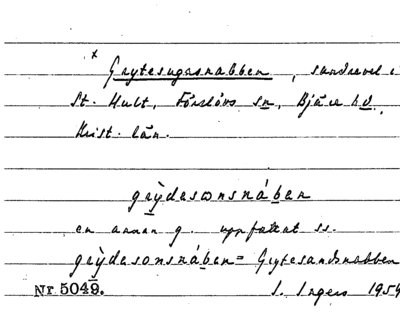 x
Grytesugnsnabben, sandrevel i
St. Hult, Förslövs sn, Bjäre hd,
Krist. län.
grỳdesωnsnáben
en annan g. uppfattat ss.
grỳdesonsnáben = Grytesandsnabben
Nr 5049. I. Ingers 1959